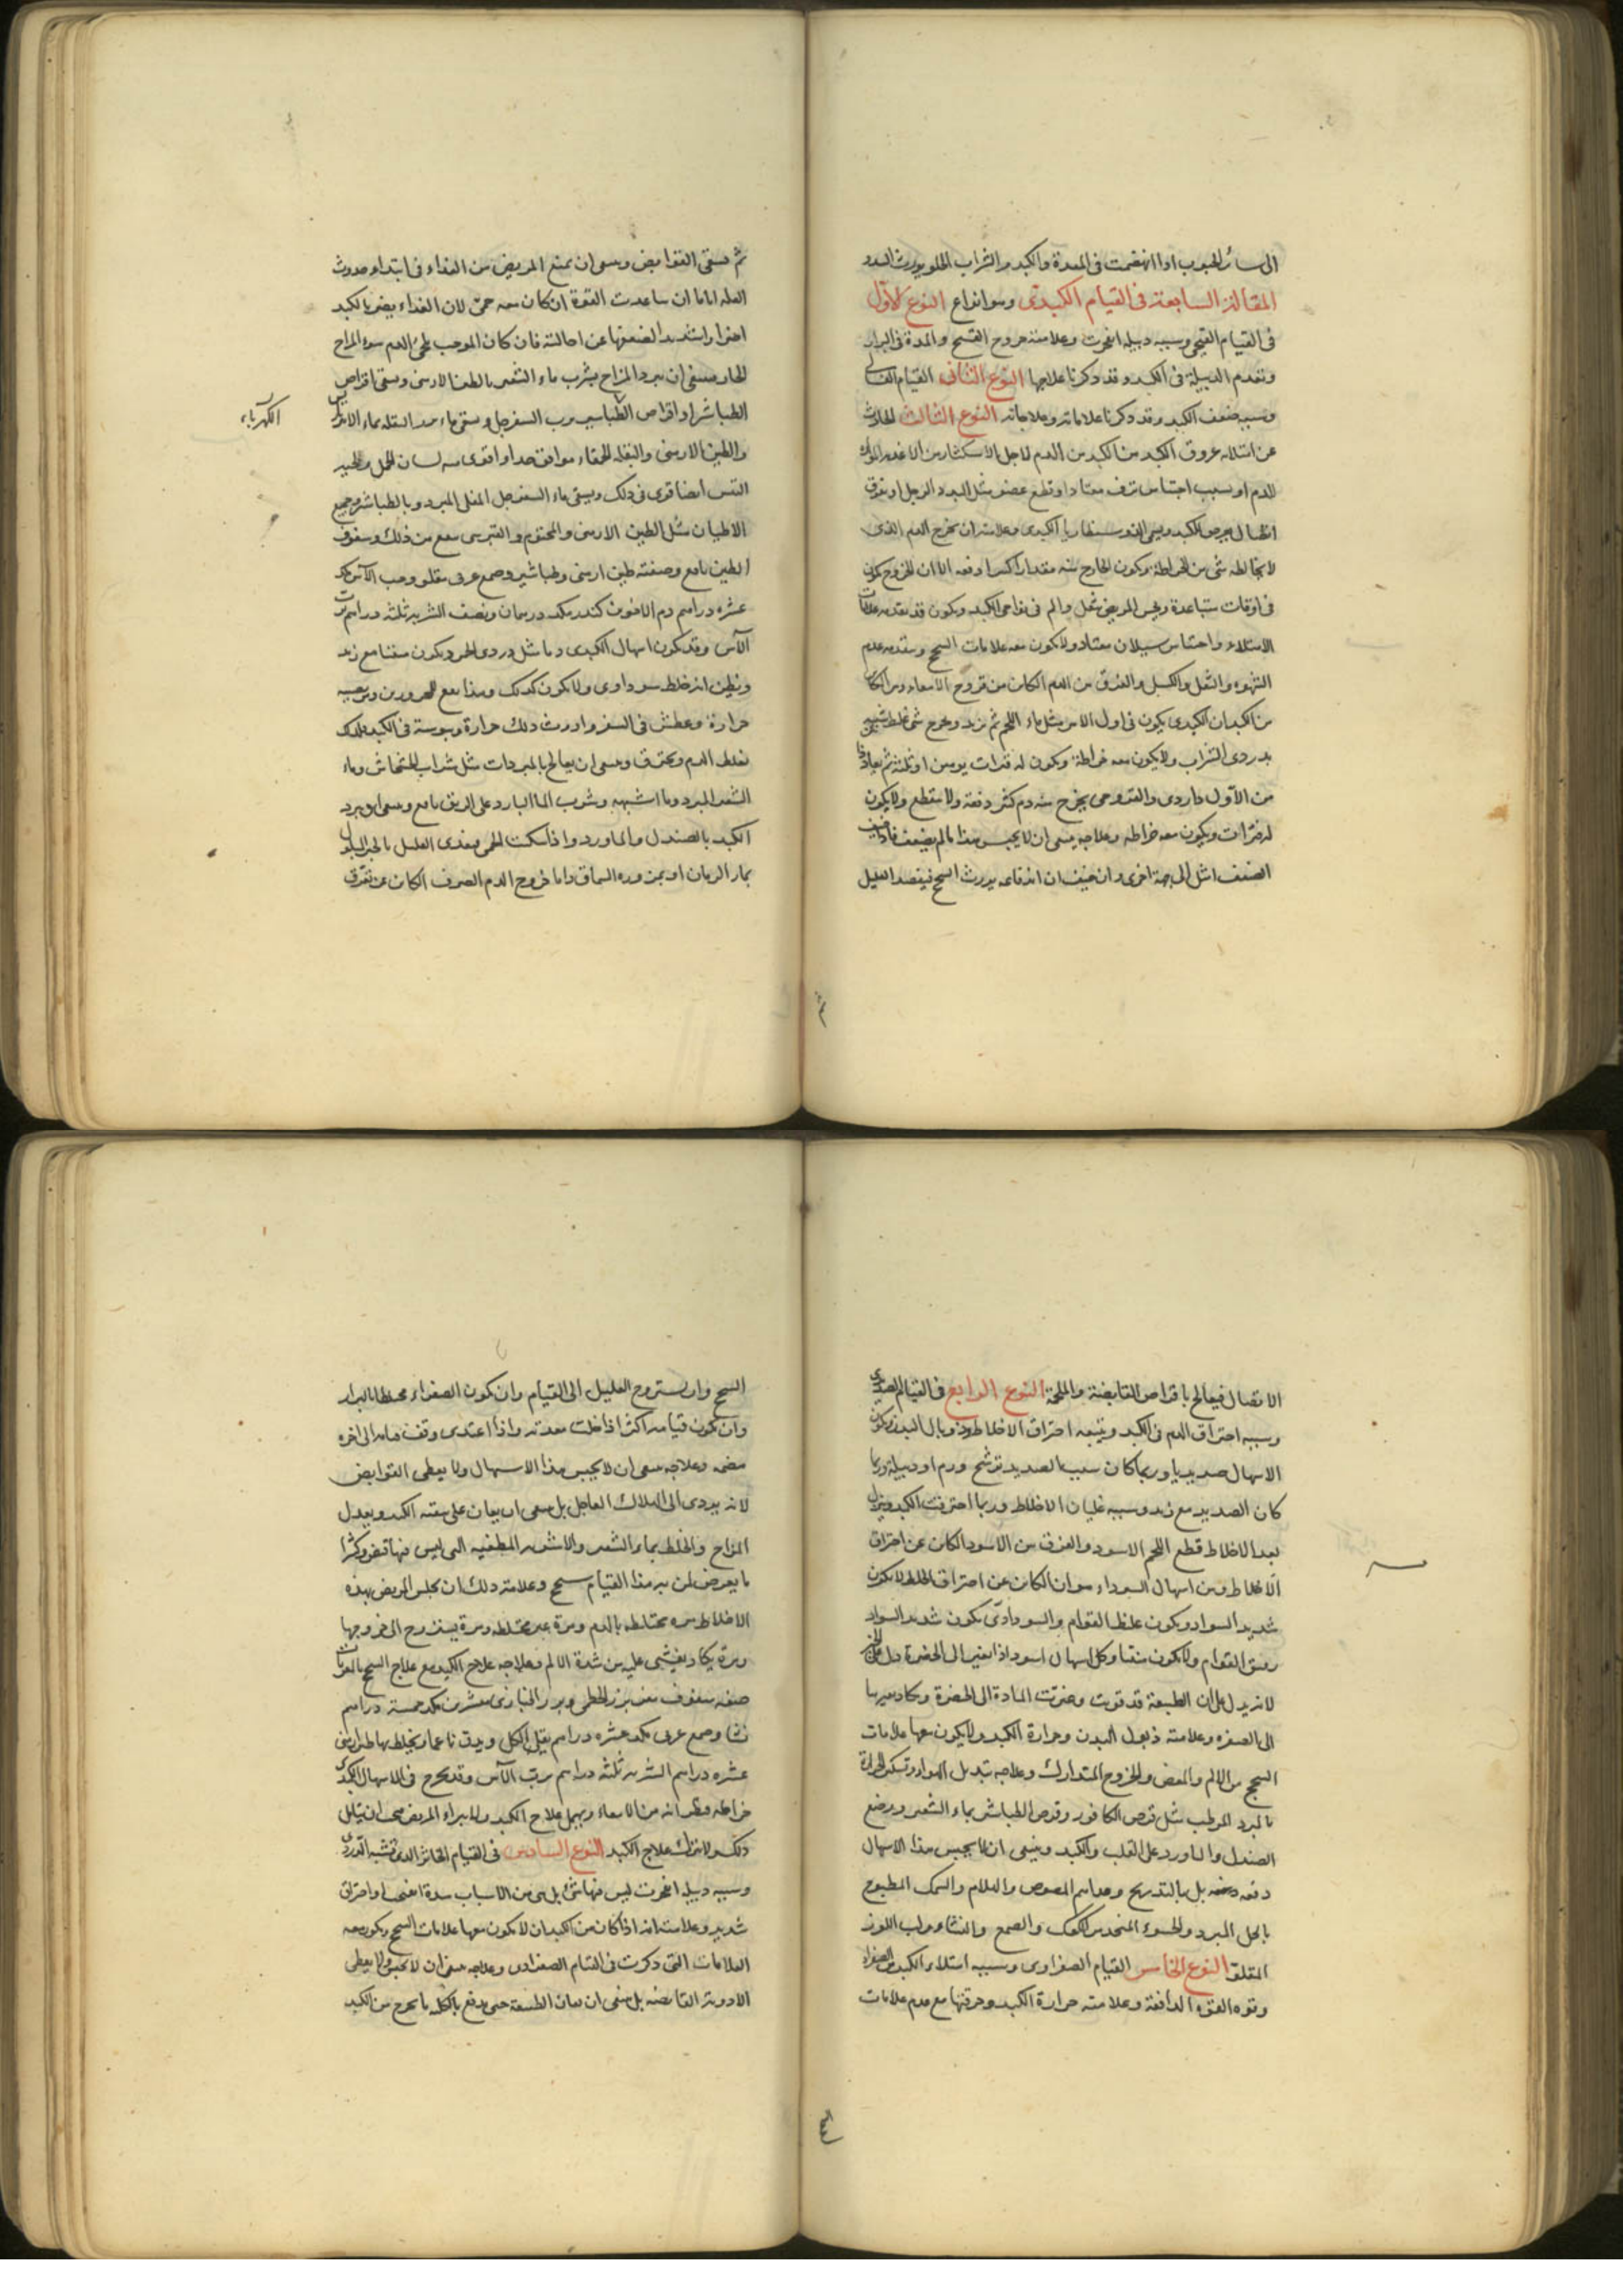 الى سائر الحبوب اذا انهضمت فى المعدة والكبد والشراب الحلو يورث السدد
المقالة السابعة فى القيام الكبدى وهو انواع النوع الاول
فى القيام القيحى وسببه دبيلة انفجرت وعلامته خروج القيح والمدة فى البراز
وتقدم الدبيلة فى الكبد وقد ذكرنا علاجها النوع الثانى القيام الغسالى
وسببه ضعف الكبد وقد ذكرنا علاماته وعلاجاته النوع الثالث الحادث
عن امتلاء عروق الكبد من الدم لاجل الاستكثار من الاغذية المولدة
للدم او بسبب احتباس نزف معتاد او قطع عضو مثل اليد والرجل او تفرق
اتصال يعرض للكبد ويسمى الذوسنطاريا الكبدى وعلامته ان يخرج الدم الذى
لا يخالطه شى من الخراطة ويكون الخارج منه مقدارا كثيرا دفعة الا ان الخروج يكون
فى اوقات متباعدة ويحس المريض بثقل والم فى نواحى الكبد ويكون قد تقدمه علامات
الامتلاء واحتباس سيلان معتاد ولا يكون معه علامات السحج ويتقدمه عدم
الشهوة والثقل والكسل والفرق بين الدم الكائن من قروح الامعاء وبين الكائن
من الكبد ان الكبدى يكون فى اول الامر مثل ماء اللحم ثم يزيد ويخرج شى غليظ شبيه
بدردى الشراب ولا يكون معه خراطة ويكون له فترات يومين او ثلثة ثم يعاود
من الاول داردى والقروحى يخرج منه دم كثير دفعة ولا ينقطع ولا يكون
له فترات ويكون معه خراطة وعلاجه ينبغى ان لا يحبس هذا ما لم يضعف فاذا خيف
الضعف اميل الى جهة اخرى وان خيف ان اندفاعه يورث السحج فيفصد العليل
ثم يسقى القوابض وينبغى ان يمنع المريض من الغذاء فى ابتداء حدوث
العلة اياما ان ساعدت القوة ان كان معه حمى لان الغذاء يضر بالكبد
اضرارا شديدا لضعفها عن احالته فان كان الموجب لمجئ الدم سوء المزاج
الحار فينبغى ان يبرد المزاج بشرب ماء الشعير بالطين الارمنى ويسقى اقراص
الطباشير او اقراص الطباشير برب السفرجل ويسقى ماء
الكهرباء
والطين الارمنى والبقلة الحمقاء موافق جدا واقوى منه لسان الحمل
ايضا قوى فى ذلك ويسقى ماء السفرجل المغلى المبرد وبالطباشير وجميع
الاطيان مثل الطين الارمنى والمختوم والقبرسى ينفع من ذلك وسفوف
الطين نافع وصفته طين ارمنى وطباشير وصمغ عربى مقلو وحب الآس مكد
عشرة دراهم دم الاخوين كندر مكد درهمان ونصف الشربة ثلثة دراهم برب
الآس وقد يكون اسهال الكبدى دما مثل دردى الخمر ويكون منتنا مع زبد
ويظن انه خلط سوداوى ولا يكون كذلك وهذا يقع للمحرورين ومن يصيبه
حرارة وعطش فى السفر واورث ذلك حرارة ويبوسة فى الكبد فلذلك
يغلظ الدم ويحترق وينبغى ان يعالج بالمبردات مثل شراب الخشخاش وماء
الشعير المبرد وما اشبهه وشرب الماء البارد على الريق نافع وينبغى ان يبرد
الكبد بالصندل والماورد واذا سكنت الحمى يغذى العليل بالخبز المبلول
بماء الرمان او بمزورة السماق واما خروج الدم الصرف الكائن عن تفرق
الاتصال فيعالج باقراص القابضة والملحمة النوع الرابع فى القيام الصديدى
وسببه احتراق الدم فى الكبد ويتبعه احتراق الاخلاط وذوبان البدن ويكون
الاسهال صديديا وربما كان سبب الصديد ترشح ورم او دبيلة وربما
كان الصديد مع زبد وسببه غليان الاخلاط وربما احترقت الكبد وينزل
بعد الاخلاط قطع اللحم الاسود والفرق بين الاسود الكائن عن احتراق
الاخلاط وبين اسهال السوداء هو ان الكائن عن احتراق الخلط لا يكون
شديد السواد ويكون غليظ القوام والسوداوى يكون شديد السواد
رقيق القوام ولا يكون منتنا وكل اسهال اسود اذا تغير الى الخضرة دل على الخير
لانه يدل على ان الطبيعة قد قويت وغيرت المادة الى الخضرة وكاد يغيرها
الى الصفرة وعلامته ذبول البدن وحرارة الكبد ولا يكون معها علامات
السحج من الالم والمغص والخروج المتدارك وعلاجه تبديل المواد وتسكين الحرارة
بالمبرد المرطب مثل قرص الكافور وقرص الطباشير بماء الشعير ويوضع
الصندل والماورد على القلب والكبد وينبغى ان لا يحبس هذا الاسهال
دفعة بل بالتدريج وغذاهم المصوص والهلام والسمك المطبوخ
بالخل المبرد والحسوء المتخذ من الكعك والصمغ والنشاء ولب اللوز
المقلو النوع الخامس القيام الصفراوى وسببه امتلاء الكبد من الصفراء
وقوة القوة الدافعة وعلامته حرارة الكبد وحرقتها مع عدم علامات
السحج وان يستروح العليل الى القيام وان يكون الصفراء مختلطا بالبراز
وان يكون قيامه اكثر اذا خلت معدته واذا اغتذى وقف قيامه الى اخره
هضمه وعلاجه ينبغى ان لا يحبس هذا الاسهال ولا يعطى القوابض
لانه يودى الى الهلاك العاجل بل ينبغى ان يعان على تنقية الكبد ويعدل
المزاج والخلط بماء الشعير والاشربة المطفئة التى ليس فيها قبض وكثيرا
ما يعرض لمن به هذا القيام سحج وعلامة ذلك ان يجلس المريض بهذه
الاخلاط مرة مختلطة بالدم ومرة غير مختلطة ومرة يستروح الى خروجها
ومرة يكاد يغشى عليه من شدة الالم وعلاجه علاج الكبد مع علاج السحج بالمغريات
صفة سفوف بزر الخطمى وبزر الخبازى مقشرين مكد خمسة دراهم
نشا وصمغ عربى مكد عشرة دراهم يقلى الكل ويدق ناعما ويخلط بها طين ارمنى
عشرة دراهم الشربة ثلثة دراهم برب الآس وقد يخرج فى الاسهال الكبدى
خراطة فيظن انه من الامعاء ويهمل علاج الكبد ولا يبراء المريض فينبغى ان يتامل
ذلك ولا يترك علاج الكبد النوع السادس فى القيام الخاثر الذى يشبه الدردى
وسببه دبيلة انفجرت ليس فيها شئ بل هى من الاسباب سدة انفتحت او احتراق
شديد وعلامته انه اذا كان من الكبد ان لا يكون معها علامات السحج ويكون معه
العلامات التى ذكرت فى القيام الصفراوى وعلاجه ينبغى ان لا يحبس ولا يعطى
الادوية القابضة بل ينبغى ان يعان الطبيعة حتى يدفع بالكلية ما يخرج من الكبد